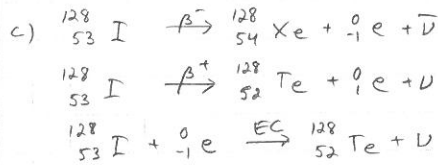 c) ¹²⁸₅₃ I →(β⁻) ¹²⁸₅₄ Xe + ⁰₋₁ e + ν̄
¹²⁸₅₃ I →(β⁺) ¹²⁸₅₂ Te + ⁰₁ e + ν
¹²⁸₅₃ I + ⁰₋₁ e →(EC) ¹²⁸₅₂ Te + ν